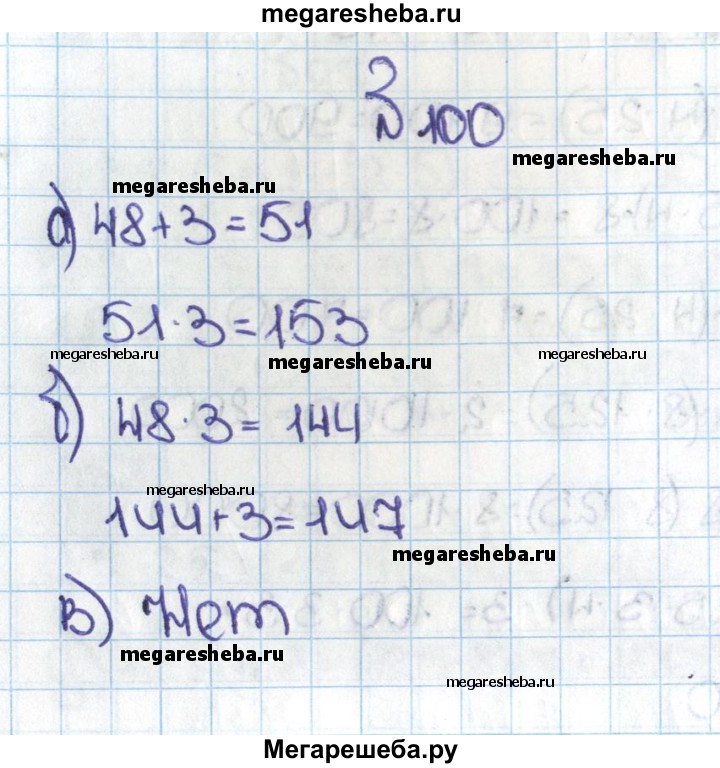 megaresheba.ru
№ 100
megaresheba.ru
megaresheba.ru
а) 48+3=51
51·3=153
megaresheba.ru
megaresheba.ru
megaresheba.ru
б) 48·3= 144
megaresheba.ru
144+3=147
megaresheba.ru
в) Нет
megaresheba.ru
megaresheba.ru
Мегарешеба.ру